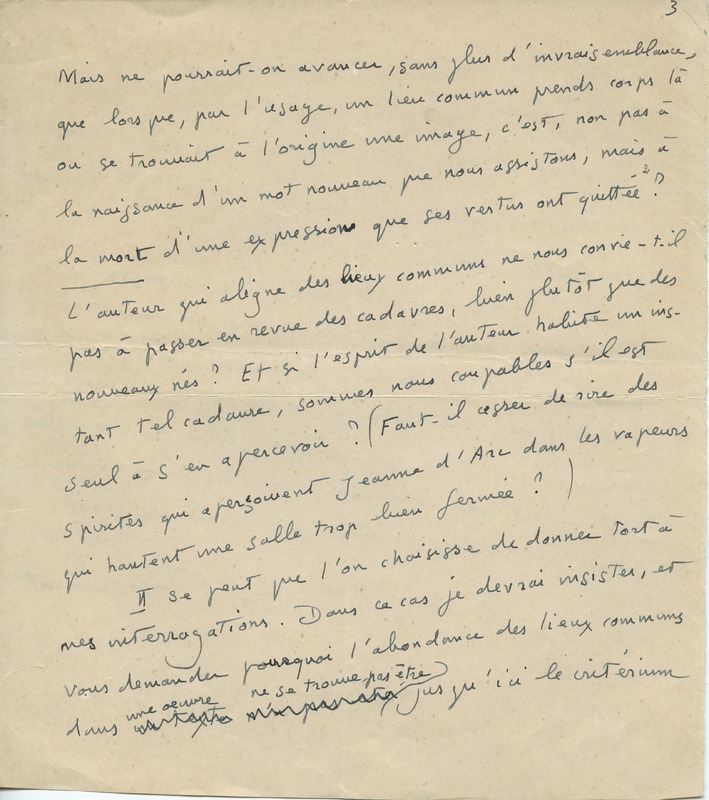 3
Mais ne pourrait-on avancer, sans plus d'invraisemblance,
que lorsque, par l'usage, un lieu commun prends corps là
ou se trouvait à l'origine une image, c'est, non pas à
la naissance d'un mot nouveau que nous assistons, mais à
la mort d'une expression que ses vertus ont quittée ?
L'auteur qui aligne des lieux communs ne nous convie-t-il
pas à passer en revue des cadavres, bien plutôt que des
nouveaux nés ? Et si l'esprit de l'auteur habite un ins-
tant tel cadavre, sommes nous coupables s'il est
seul à s'en apercevoir ? (Faut-il cesser de rire des
spirites qui aperçoivent Jeanne d'Arc dans les vapeurs
qui hantent une salle trop bien fermée ? )
Il se peut que l'on choisisse de donner tort à
mes interrogations. Dans ce cas je devrai insister, et
vous demander pourquoi l'abondance des lieux communs
dans une oeuvre ne se trouve pas être
(jusqu'ici le critérium